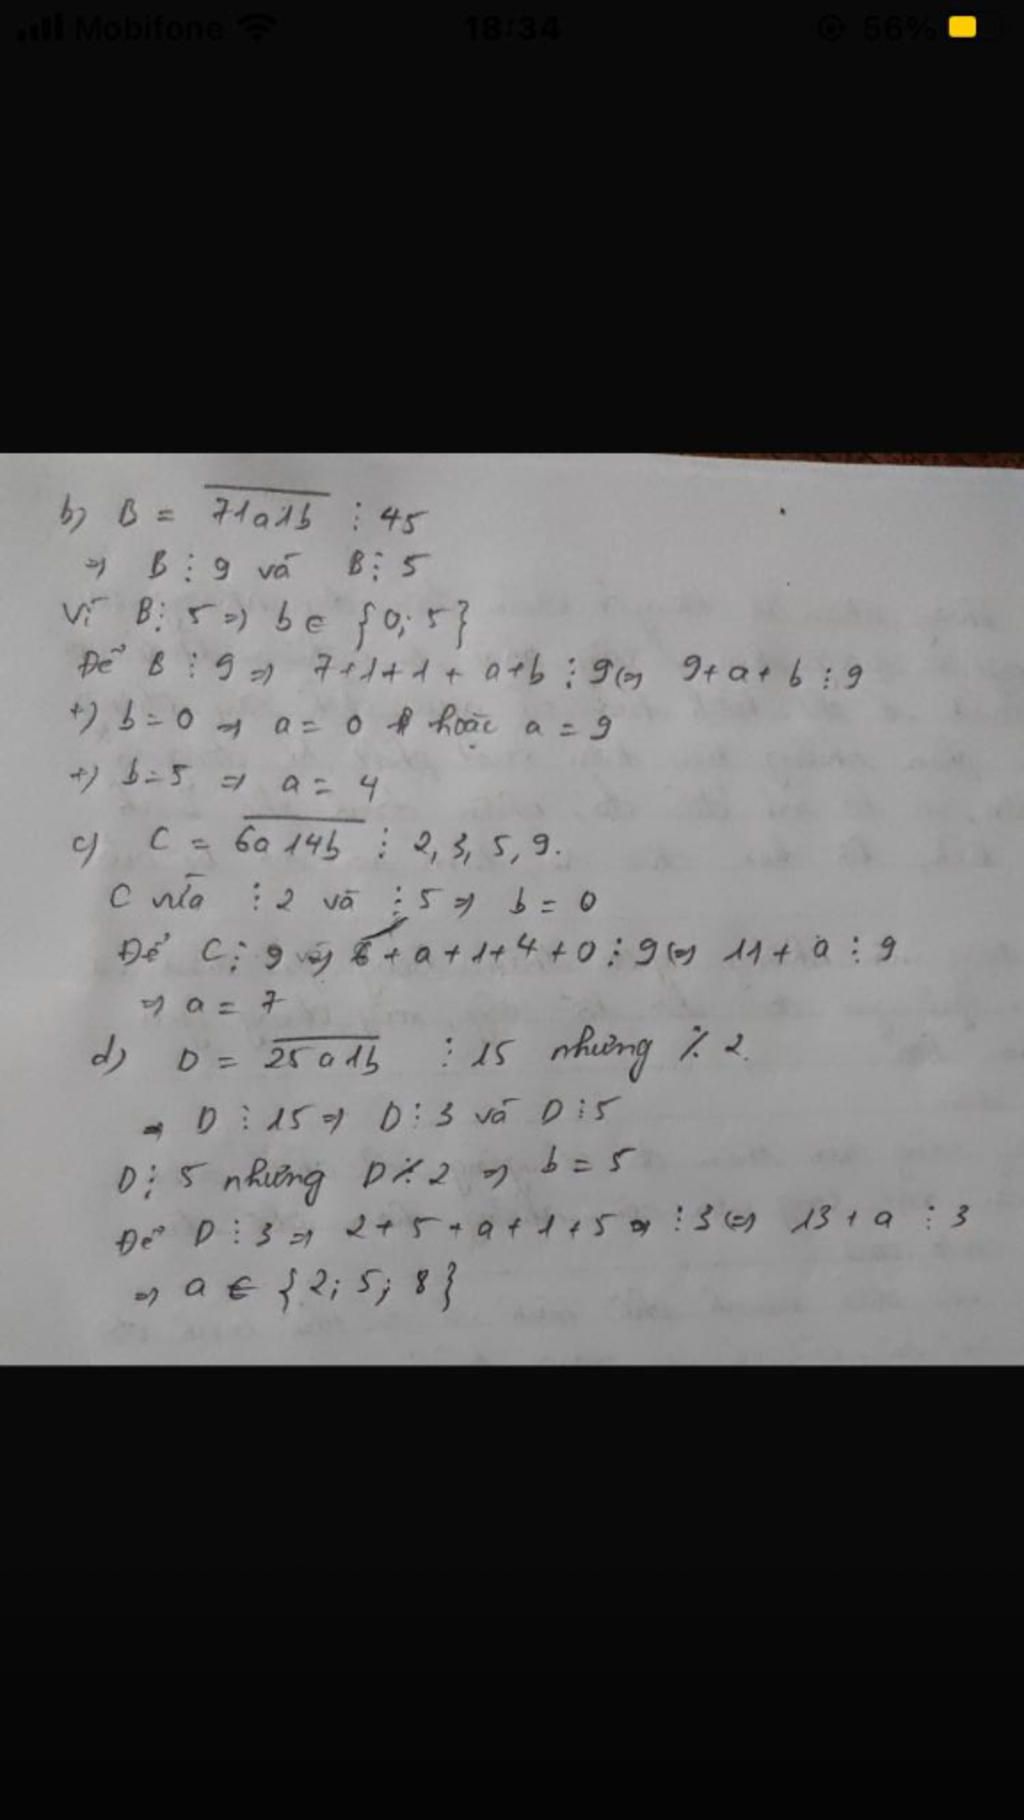 Mobifone 18:34 56%
b) B = 71a1b ⋮ 45
=> B ⋮ 9 và B ⋮ 5
Vì B ⋮ 5 => b ∈ {0; 5}
Để B ⋮ 9 => 7+1+1+ a+b ⋮ 9 <=> 9+a+b ⋮ 9
+) b=0 => a=0 hoặc a=9
+) b=5 => a=4
c) C = 6a14b ⋮ 2, 3, 5, 9.
C vừa ⋮ 2 và ⋮ 5 => b = 0
Để C ⋮ 9 => 6+a+1+4+0 ⋮ 9 <=> 11+a ⋮ 9
=> a = 7
d) D = 25a1b ⋮ 15 nhưng ⋮̸ 2.
=> D ⋮ 15 => D ⋮ 3 và D ⋮ 5
D ⋮ 5 nhưng D ⋮̸ 2 => b = 5
Để D ⋮ 3 => 2+5+a+1+5 ⋮ 3 <=> 13+a ⋮ 3
=> a ∈ {2; 5; 8}